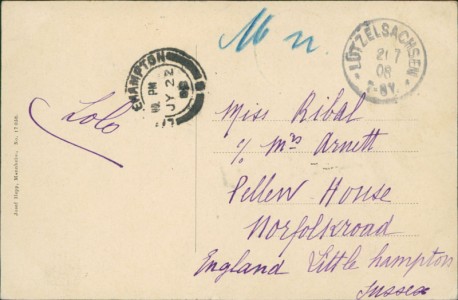 M n.
LÜTZELSACHSEN
21 7
08
7-8V.
EHAMPTON
PM
JY 22
08
Lolo
Miss Ribal
c/o Mrs Arnett
Pellew House
Norfolkroad
England Little hampton
Sussex
Josef Hepp, Mannheim. No.